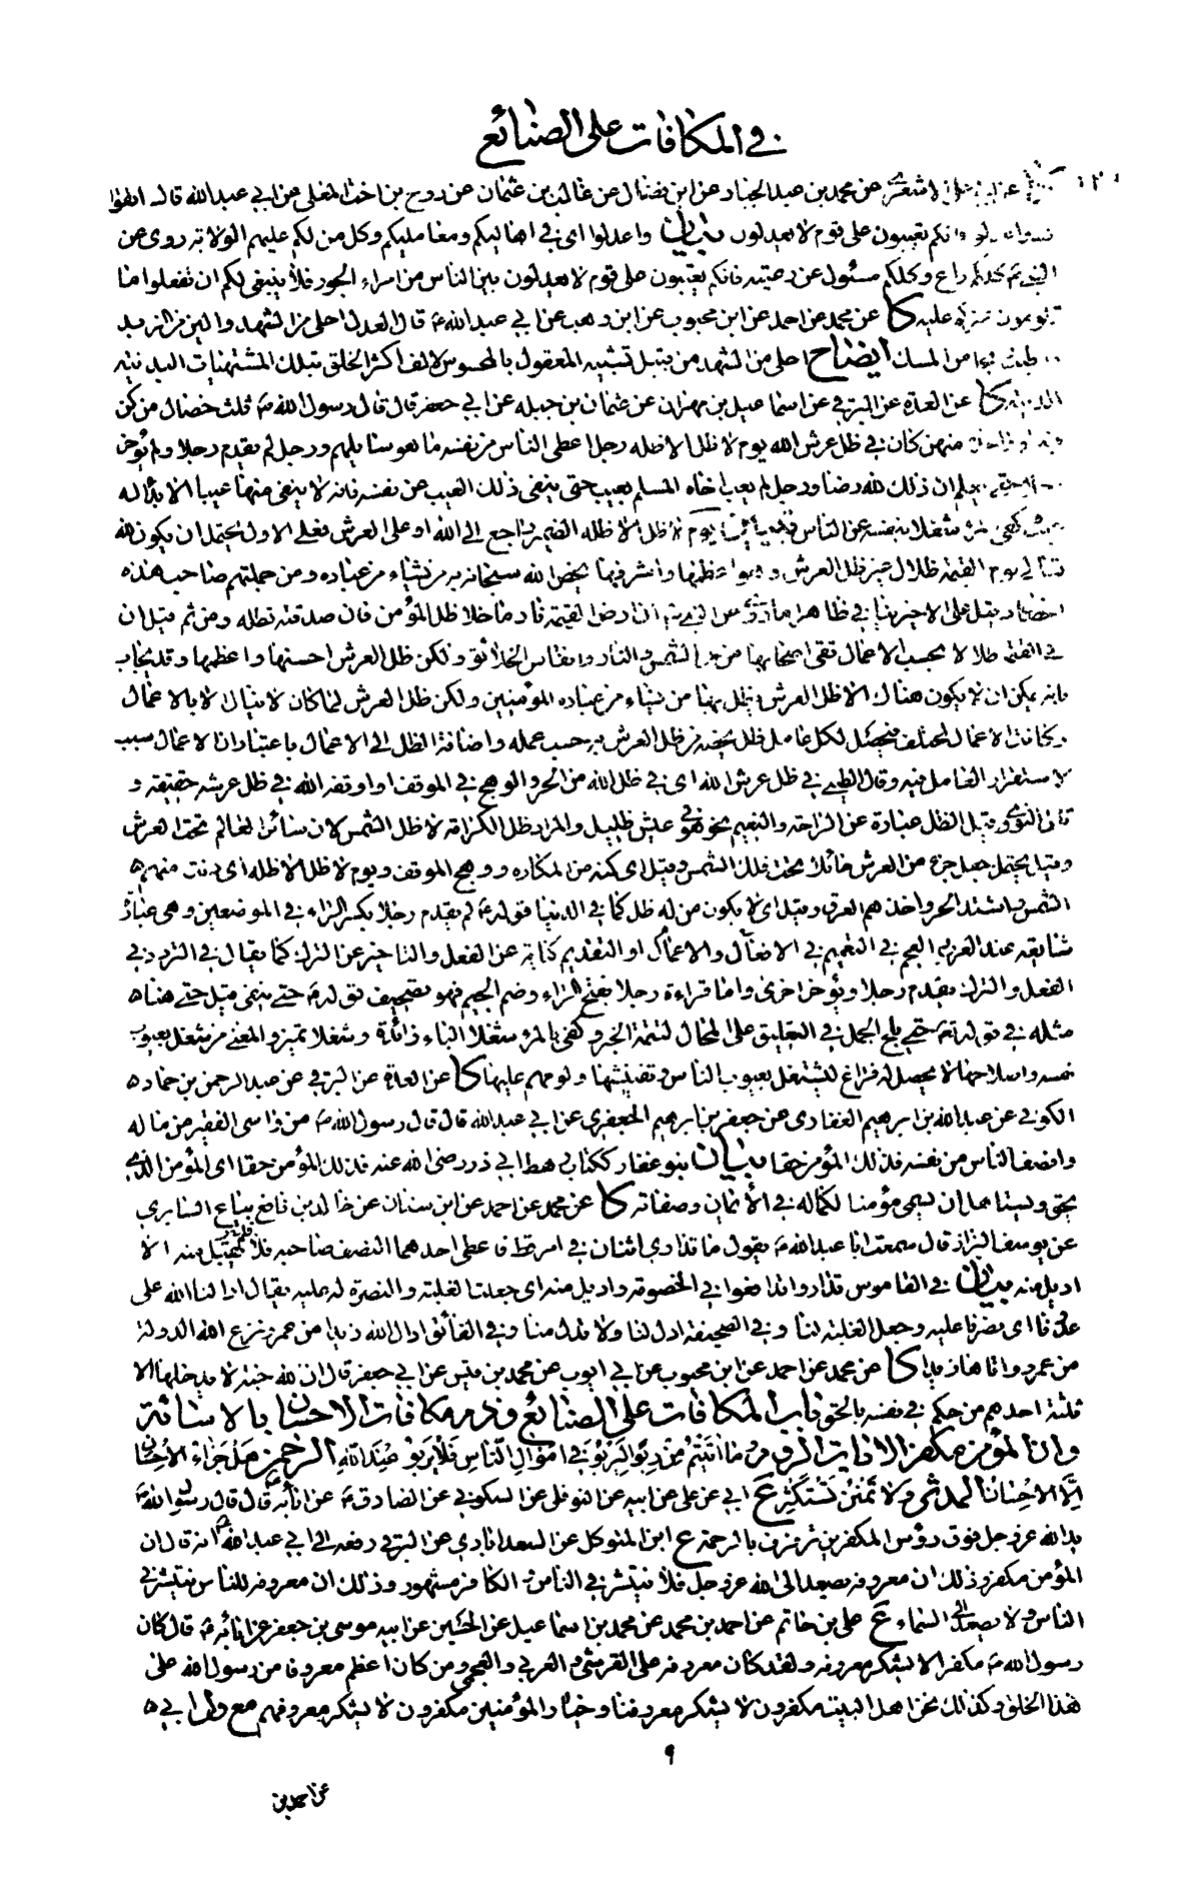 في المكافات على الصنائع
عن محمد بن عبد الجبار عن ابن فضال عن غالب بن عثمان عن روح بن اخت المعلى عن ابي عبد الله قال اتقوا
فانكم تعيبون على قوم لا يعدلون بيان واعدلوا اي في اهاليكم ومعامليكم وكل من لكم عليهم الولاية روى عن
كلكم راع وكلكم مسئول عن رعيته فانكم تعيبون على قوم لا يعدلون بين الناس من امراء الجور فلا ينبغي لكم ان تفعلوا ما
تلومون غيركم عليه كا عن محمد عن احمد عن ابن محبوب عن ابن وهب عن ابي عبد الله ع قال العدل احلى من الشهد والين من الزبد
من المسك ايضاح احلى من الشهد من قبيل تشبيه المعقول بالمحسوس لالف اكثر الخلق بتلك المشتهيات البدنية
الدنية كا عن العدة عن البرقي عن اسماعيل بن مهران عن عثمان بن جبلة عن ابي جعفر قال قال رسول الله ص ثلث خصال من كن
منهن كان في ظل عرش الله يوم لا ظل الا ظله رجل اعطى الناس من نفسه ما هو سائلهم ورجل لم يقدم رجلا ولم يؤخر
يعلم ان ذلك لله رضا ورجل لم يعب اخاه المسلم بعيب حتى ينفي ذلك العيب عن نفسه فانه لا ينفي منها عيبا الا بدا له
شغلا بنفسه عن الناس يوم لا ظل الا ظله الضمير راجع الى الله او على العرش فعلى الاول يحتمل ان يكون لله
تعالى يوم القيمة ظلال غير ظل العرش وهو اعظمها واشرفها يخص الله سبحانه به من يشاء من عباده ومن جملتهم صاحب هذه
الخصال وقيل على الاخير ينافي ظاهرا ما ان ارض القيمة نار ما خلا ظل المؤمن فان صدقته تظله ومن ثم قيل ان
في القيمة ظلالا بحسب الاعمال تقي اصحابها من حر الشمس والنار وانفاس الخلائق ولكن ظل العرش احسنها واعظمها وقد يجاب
بانه يمكن ان لا يكون هناك الا ظل العرش يظل بها من يشاء من عباده المؤمنين ولكن ظل العرش لما كان لا ينال الا بالاعمال
وكانت الاعمال تختلف فيحصل لكل عامل ظل يخصه من ظل العرش بحسب عمله واضافة الظل الى الاعمال باعتبار ان الاعمال سبب
لاستقرار العامل فيه وقال الطيبي في ظل عرش الله اي في ظل الله من الحر والوهج في الموقف او اوقفه الله في ظل عرشه حقيقة و
قال النووي وقيل الظل عبارة عن الراحة والنعيم نحو هو في عيش ظليل والمراد ظل الكرامة لا ظل الشمس لان سائر العالم تحت العرش
وقيل يحتمل جعل جزء من العرش حائلا تحت فلك الشمس وقيل اي كنه من المكاره ووهج الموقف ويوم لا ظل الا ظله اي دنت منهم
الشمس واشتد الحر واخذهم العرق وقيل اي لا يكون من له ظل كما في الدنيا قوله لم يقدم رجلا بكسر الراء في الموضعين وهي عبارة
شايعة عند العرب والعجم في التعميم في الافعال والاعمال او التقديم كناية عن الفعل والتاخير عن الترك كما يقال في التردد في
الفعل والترك يقدم رجلا ويؤخر اخرى واما قراءة رجلا بفتح الراء وضم الجيم فهو تصحيف قوله حتى ينفي قيل حتى هنا
مثله في قوله تع حتى يلج الجمل في التعليق على المحال لتتمة الخبر وكفى بالمرء شغلا الباء زائدة وشغلا تميز والمعنى من شغل بعيوب
نفسه واصلاحها لا يحصل له فراغ ليشتغل بعيوب الناس وتفتيشها ولومهم عليها كا عن العدة عن البرقي عن عبد الرحمن بن حماد
الكوفي عن عبد الله بن ابراهيم الغفاري عن جعفر بن ابراهيم الجعفري عن ابي عبد الله قال قال رسول الله ص من واسى الفقير من ماله
وانصف الناس من نفسه فذلك المؤمن حقا بيان بنو غفار ككتاب رهط ابي ذر رضي الله عنه فذلك المؤمن حقا اي المؤمن الذي
يحق ويستاهل ان يسمى مؤمنا لكماله في الايمان وصفاته كا عن محمد عن احمد عن ابن سنان عن خالد بن نافع بياع السابري
عن يوسف البزاز قال سمعت ابا عبد الله ع يقول ما تدارى اثنان في امر قط فاعطى احدهما النصف صاحبه فلم يقبل منه الا
اديل منه بيان في القاموس تداروا تدافعوا في الخصومة واديل منه اي جعلت الغلبة والنصرة له عليه يقال ادالنا الله على
عدونا اي نصرنا عليه وجعل الغلبة لنا وفي الصحيفة ادل لنا ولا تدل منا وفي الفائق ادال الله زيدا من عمرو نزع الله الدولة
من عمرو واتاها زيدا كا عن محمد عن احمد عن ابن محبوب عن ابي ايوب عن محمد بن قيس عن ابي جعفر قال ان لله جنة لا يدخلها الا
ثلثة احدهم من حكم في نفسه بالحق باب المكافات على الصنائع وذم مكافات الاحسان بالاساءة
وان المؤمن مكفر الايات الروم وما اتيتم من ربا ليربو في اموال الناس فلا يربو عند الله الرحمن هل جزاء الاحسان
الا الاحسان المدثر ولا تمنن تستكثر ع ابي عن علي عن ابيه عن النوفلي عن السكوني عن الصادق ع عن ابائه ع قال قال رسول الله ص
يد الله عز وجل فوق رؤس المكفرين ترفرف بالرحمة ع ابن المتوكل عن السعدابادي عن البرقي رفعه الى ابي عبد الله ع انه قال ان
المؤمن مكفر وذلك ان معروفه يصعد الى الله عز وجل فلا ينتشر في الناس والكافر مشهور وذلك ان معروفه للناس ينتشر في
الناس ولا يصعد الى السماء ع علي بن حاتم عن احمد بن محمد عن محمد بن اسماعيل عن الحسين عن ابيه موسى بن جعفر عن ابائه ع قال كان
رسول الله ص مكفرا لا يشكر معروفه ولقد كان معروفه على القرشي والعربي والعجمي ومن كان اعظم معروفا من رسول الله على
هذا الخلق وكذلك نحن اهل البيت مكفرون لا يشكر معروفنا وخيار المؤمنين مكفرون لا يشكر معروفهم مع ابي
٩
عن احمد بن